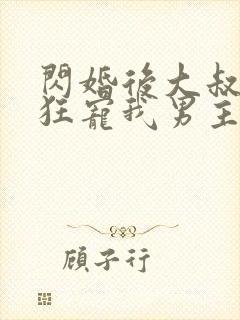 閃婚後大叔
狂寵我男主
顧子行